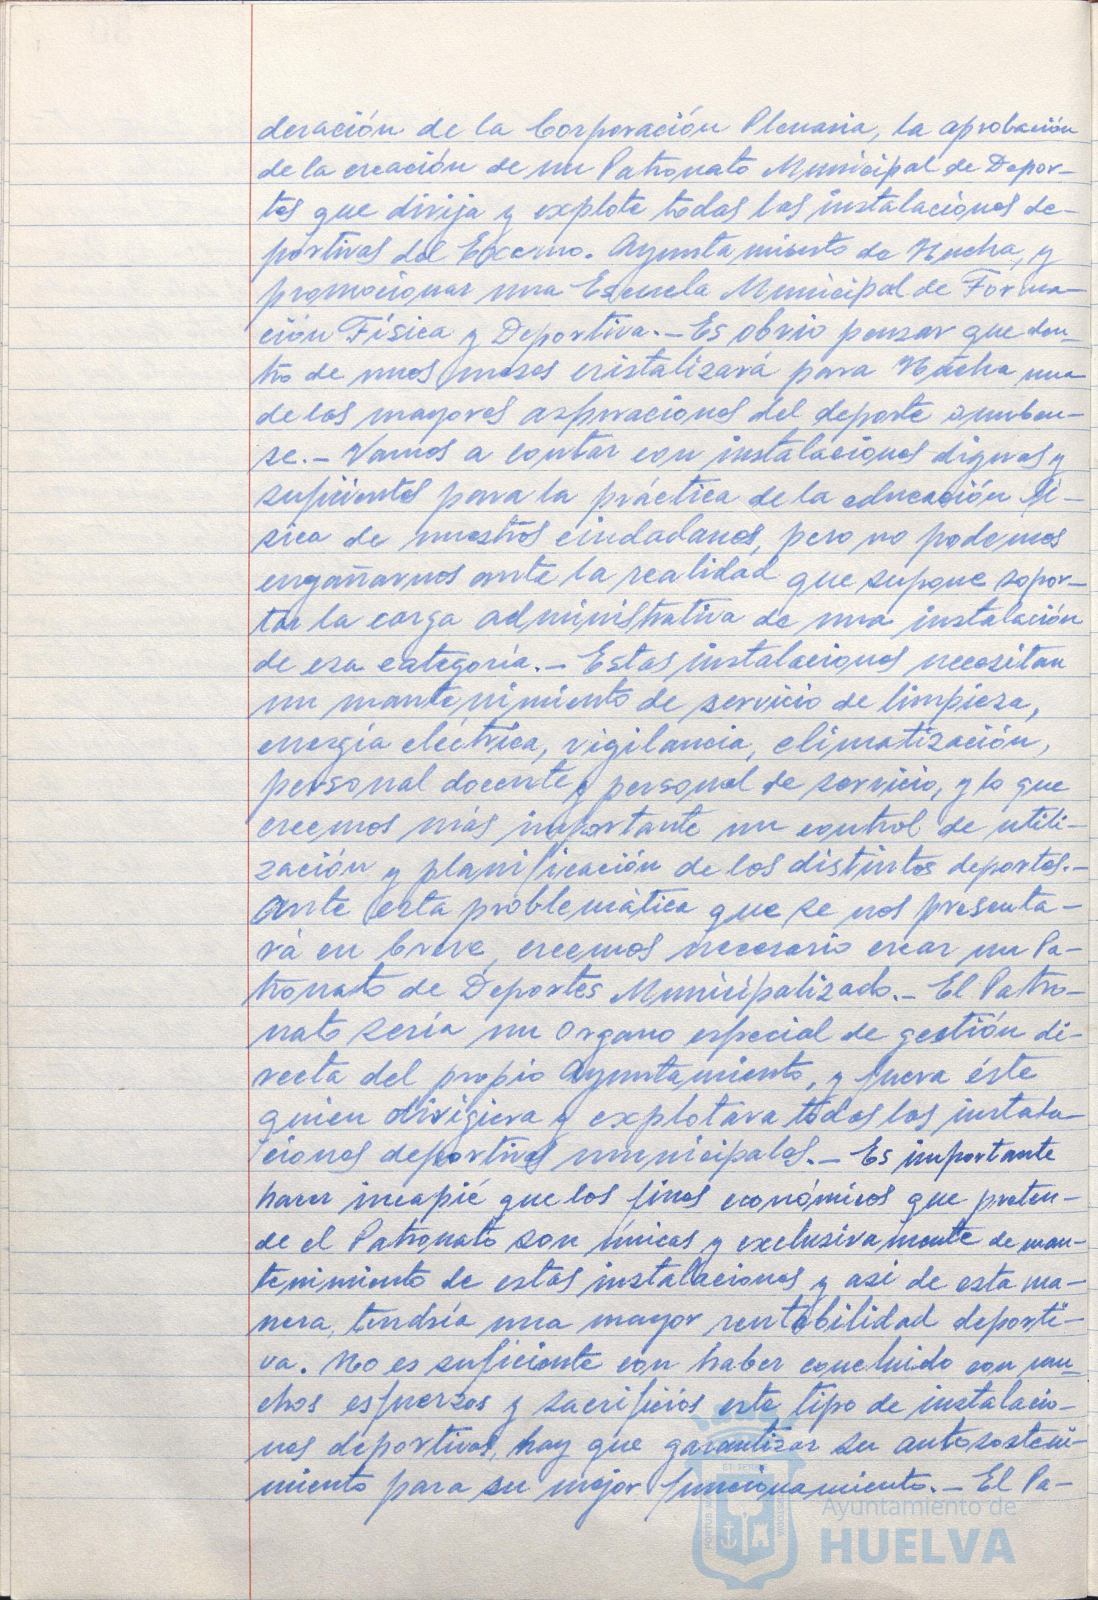 deración de la Corporación Plenaria, la aprobación
de la creación de un Patronato Municipal de Depor-
tes que dirija y explote todas las instalaciones de-
portivas del Excmo. Ayuntamiento de Huelva, y
promocionar una Escuela Municipal de Forma-
ción Física y Deportiva.- Es obvio pensar que den-
tro de unos meses cristalizará para Huelva una
de las mayores aspiraciones del deporte onuben-
se.- Vamos a contar con instalaciones dignas y
suficientes para la práctica de la educación fí-
sica de nuestros ciudadanos, pero no podemos
engañarnos ante la realidad que supone sopor-
tar la carga administrativa de una instalación
de esa categoría.- Estas instalaciones necesitan
un mantenimiento de servicio de limpieza,
energía eléctrica, vigilancia, climatización,
personal docente y personal de servicio, y lo que
creemos más importante un control de utili-
zación y planificación de los distintos deportes.-
Ante esta problemática que se nos presenta-
rá en breve, creemos necesario crear un Pa-
tronato de Deportes Municipalizado.- El Patro-
nato sería un Organo especial de gestión di-
recta del propio Ayuntamiento, y fuera éste
quien dirigiera y explotara todas las instala-
ciones deportivas municipales.- Es importante
hacer incapié que los fines económicos que preten-
de el Patronato son únicas y exclusivamente de man-
tenimiento de estas instalaciones y asi de esta ma-
nera, tendría una mayor rentabilidad deporti-
va. No es suficiente con haber concluido con mu-
chos esfuerzos y sacrificios este tipo de instalacio-
nes deportivas, hay que garantizar su autososteni-
miento para su mejor funcionamiento.- El Pa-
Ayuntamiento de
HUELVA